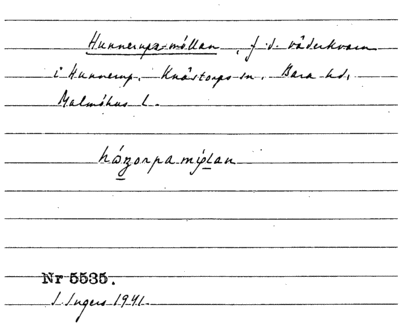 Hunnerupa möllan, f.d. väderkvarn
i Hunnerup. Knästorps sn. Bara hd,
Malmöhus l.
Nr 5535.
I. Ingers 1941.